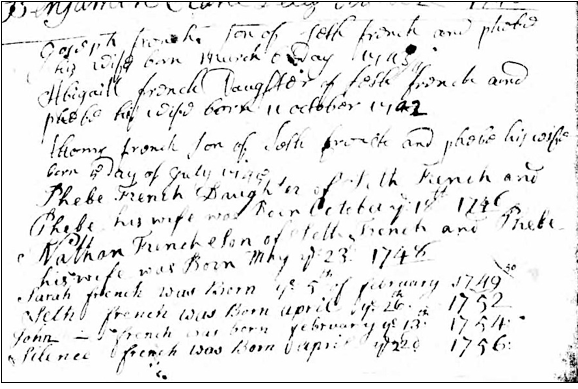 Joseph french son of Seth french and phebe
his wife born March Day
Abigaill french Daughter of Seth french and
phebe his wife born 11 october 1742
thomas french son of Seth french and phebe his wife
born Day of July
Phebe French Daughter of Seth French and
Phebe his wife was Born October 1746
Nathan French son of Seth French and Phebe
his wife was Born May ye 23 1748
Sarah french was Born ye 5th of february 1749/50
Seth french was Born april ye 26th 1752
John french was born february ye 13th 1754
Silence french was Born april ye 20 1756